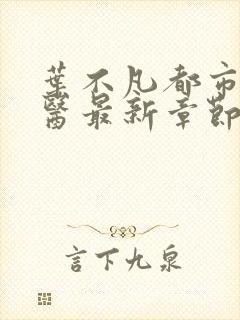 葉不凡都市
醫最新章節
言下九泉